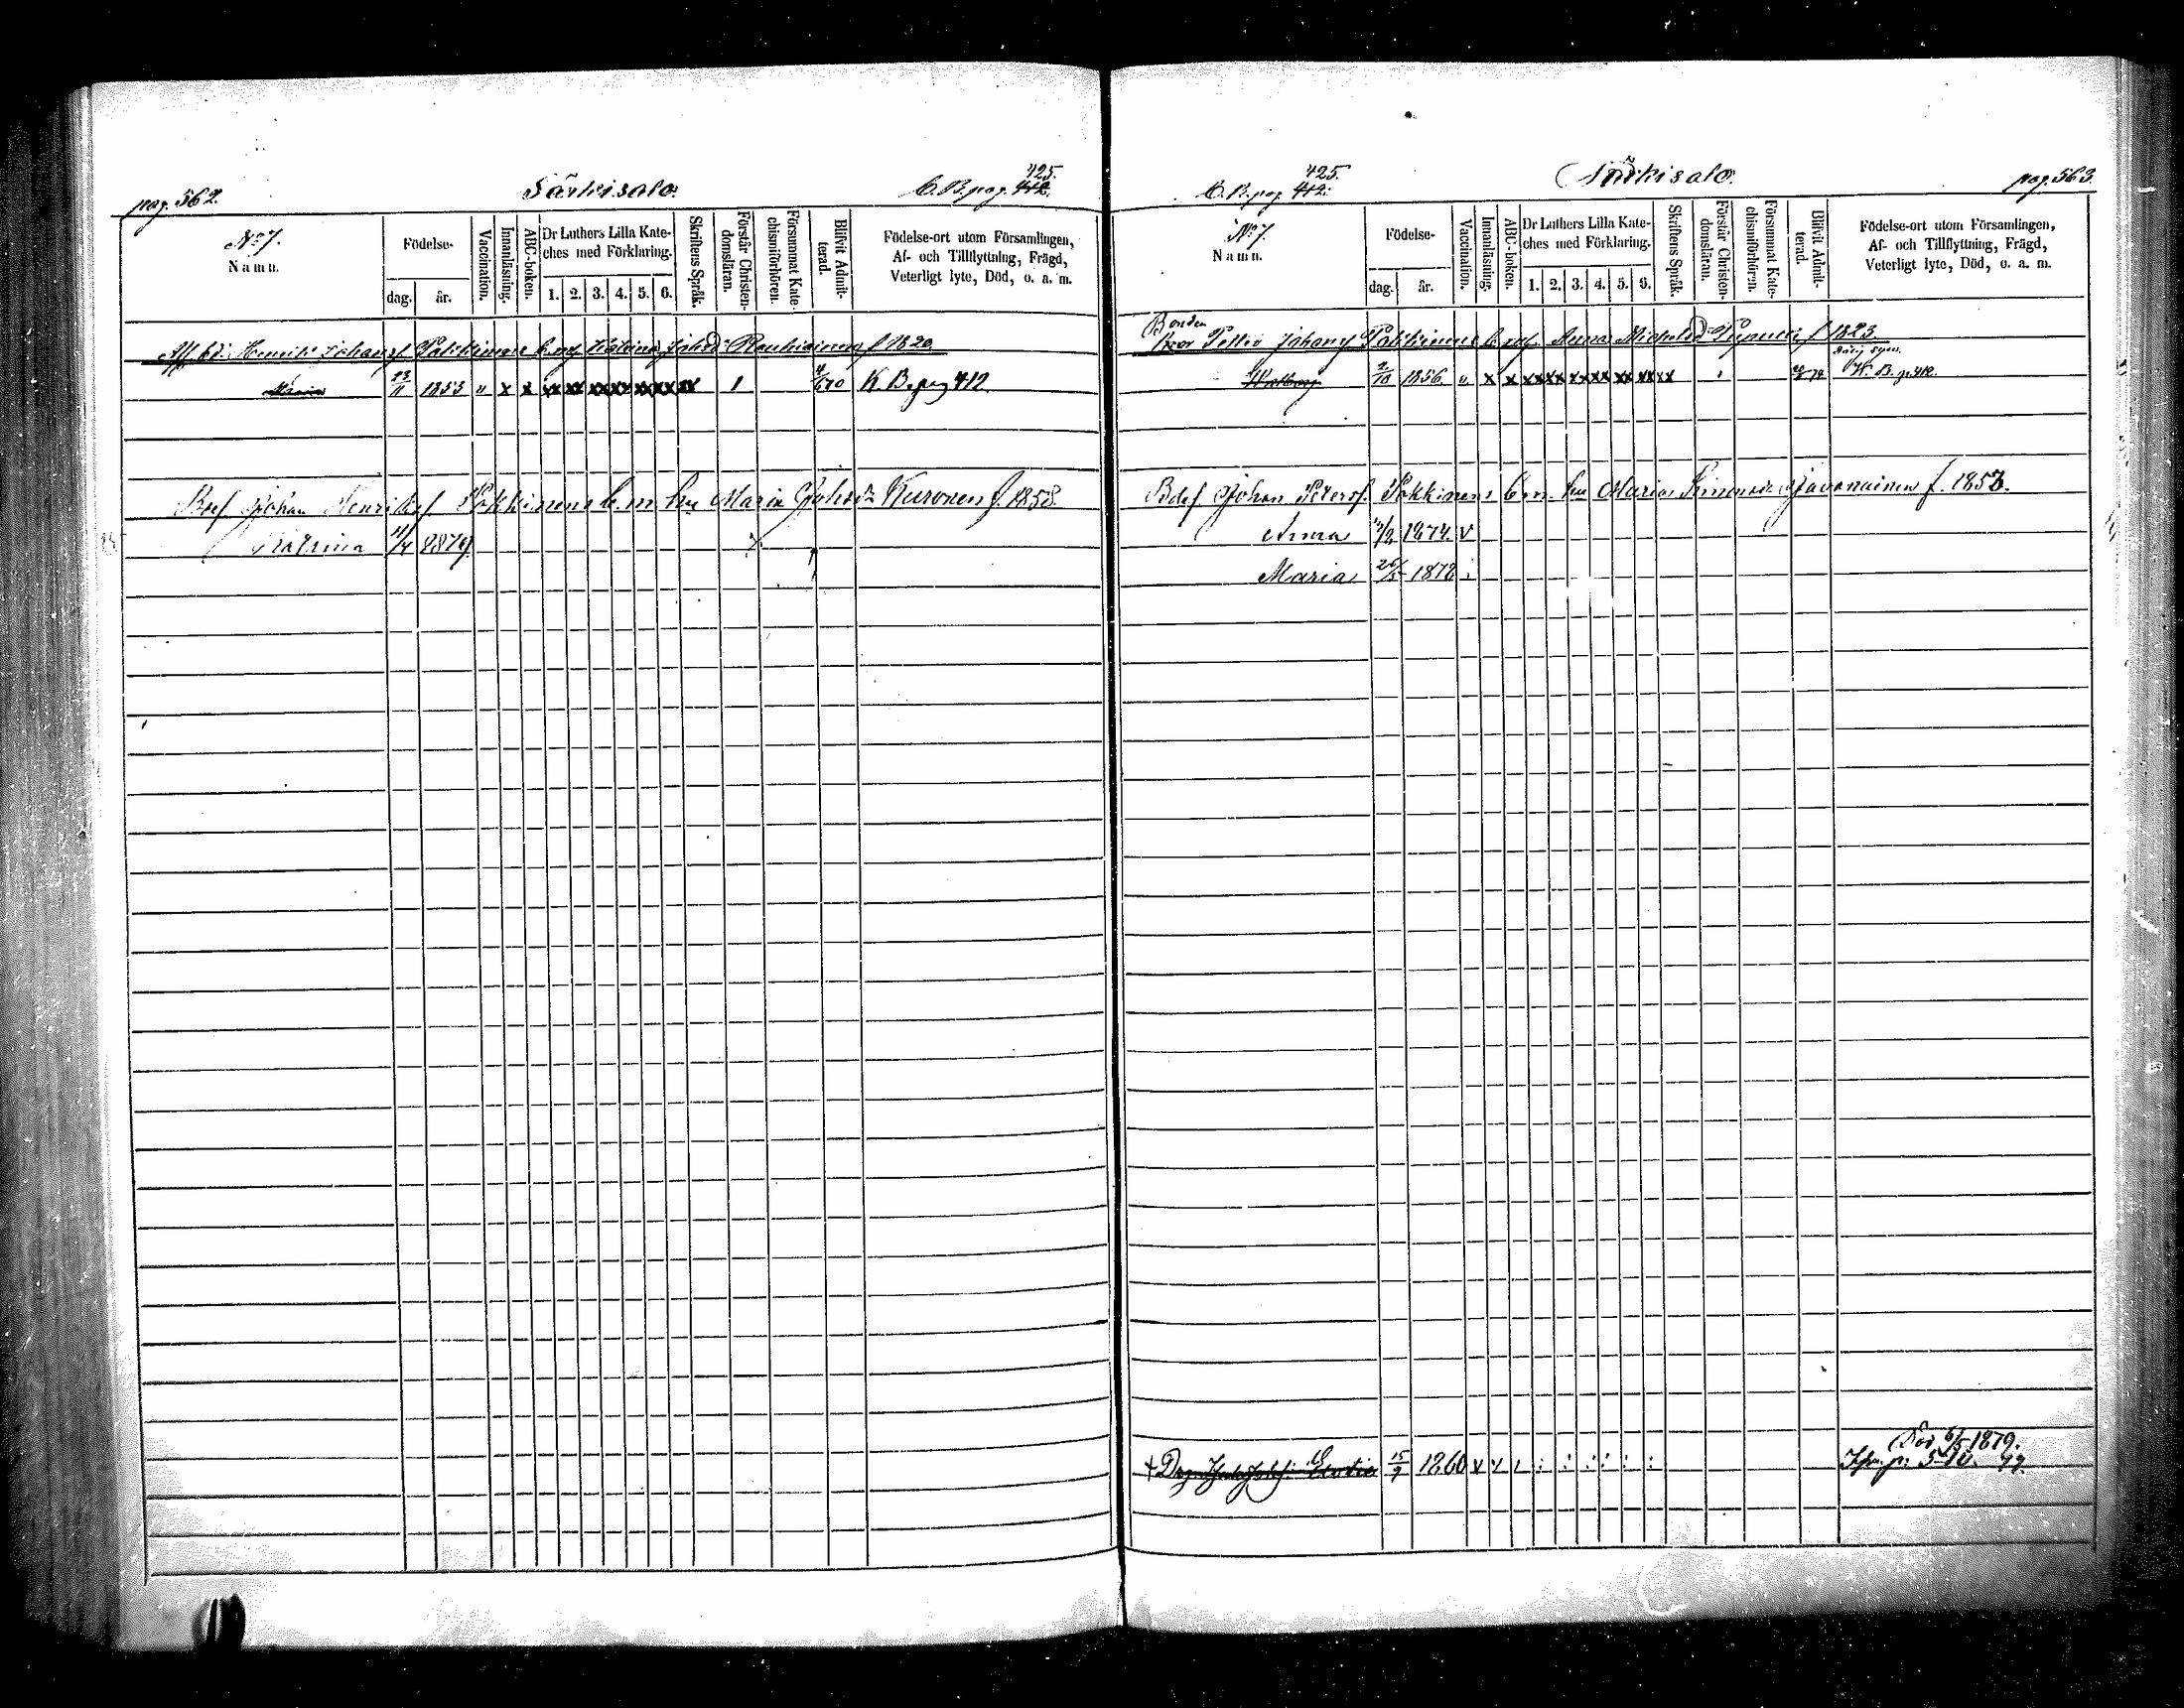 pag. 562.
Särkisalo.
425.
C. B. pag. 412.
No 7.
Namn.
Födelse-
dag.
år.
Vaccination.
Innanläsning.
ABC-boken.
Dr Luthers Lilla Kate-
ches med Förklaring.
1. 2. 3. 4. 5. 6.
Skriftens Språk.
Förstår Christen-
domsläran.
Försummat Kate-
chismiförhören.
Blifvit Admit-
terad.
Födelse-ort utom Församlingen,
Af- och Tillflyttning, Frägd,
Veterligt lyte, Död, o. a. m.
Henrik Johansf Pakkinens b. m. Katrina Johsdr f 1820
Maria 23/11 1853 v x x xx xx xx xx xx xx xx 1 K B pag 412
Bdesf Johan Henriksf Pakkinens b. m. hu Maria Johsdr Kuronen f. 1858.
Katrina 11/4 1879.
425.
C. B. pag 412.
Särkisalo.
pag. 563.
No 7.
Namn.
Födelse-
dag.
år.
Vaccination.
Innanläsning.
ABC-boken.
Dr Luthers Lilla Kate-
ches med Förklaring.
1. 2. 3. 4. 5. 6.
Skriftens Språk.
Förstår Christen-
domsläran.
Försummat Kate-
chismiförhören.
Blifvit Admit-
terad.
Födelse-ort utom Församlingen,
Af- och Tillflyttning, Frägd,
Veterligt lyte, Död, o. a. m.
Bonden
Petter Johansf Pakkinens b. m. Anna Michelsdr f 1823
Walborg 2/10 1856. v. x x xx xx xx xx xx xx xx 1 K. B. p. 412.
Bdesf Johan Petersf. Pakkinens b. m. hu Maria Simonsdr Javanainen f. 1853.
Anna 1874. v
Maria 26/5 1878
+ 15/9 1860 Död 6/5 1879.